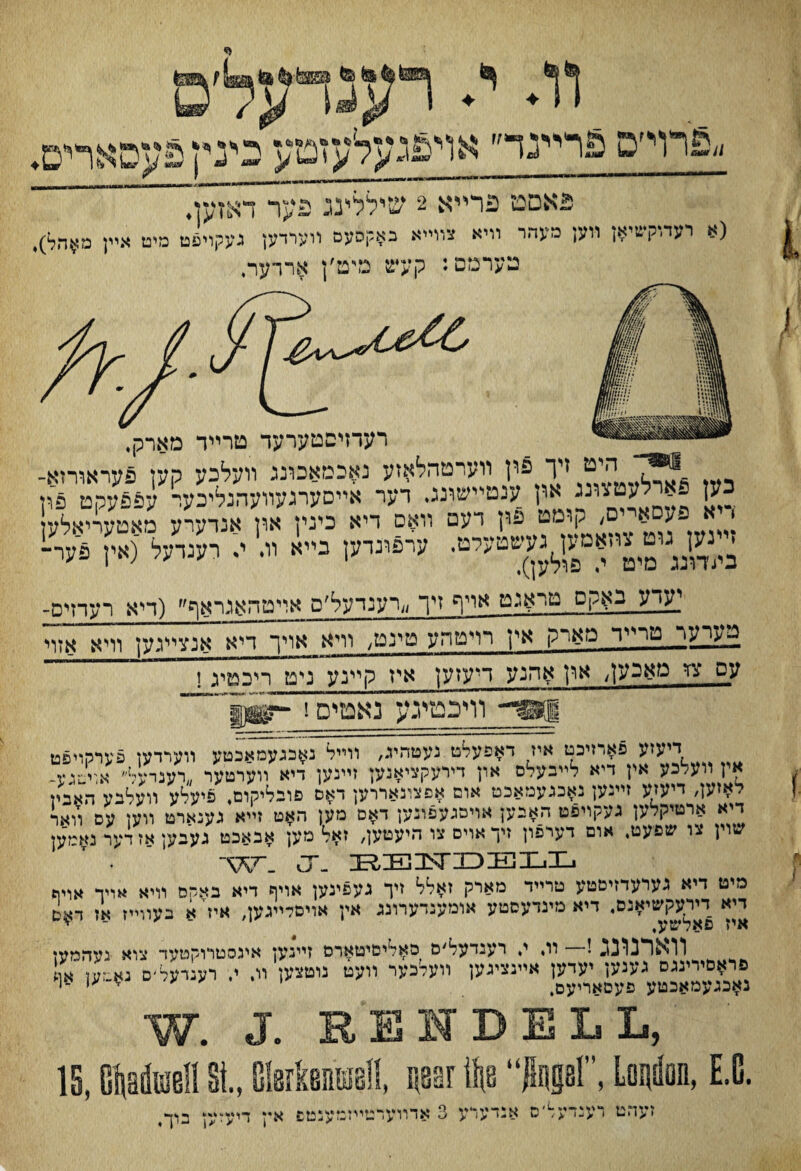 וו. י. רענדעל'ס
„פרוי'ס פריינד" אויפגעלעזטע כינין פעסאריס.
פאסט פרייא 2 שיללינג פער דאזען.
(א רעדוקשיאָן ווען מעהר וויא צווייא באָקסעס ווערדען געקויפט מיט איין מאָהל).
טערמס: קעש מיט'ן אָרדער.
W. J. Rendell
רעדזיסטערעד טרייד מארק.
היט זיך פון ווערטהלאָזע נאָכמאַכונג וועלכע קען פעראורזא-
כען פארלעטצונג און ענטיישונג. דער אייסערגעוועהנליכער עפפעקט פון
דיא פעסאריס, קומט פון דעם וואָס דיא כינין און אנדערע מאטעריאלען
זיינען גוט צוזאמען געשטעלט. ערפונדען בייא וו. י. רענדעל (אין פער-
בינדונג מיט י. פולען).
יעדע באָקס טראָגט אויף זיך „רענדעל'ס אויטהאָגראף" (דיא רעדזיס-
טערער טרייד מארק אין רויטהע טינט, וויא אויך דיא אנצייגען וויא אזוי
עס צו מאכען, און אָהנע דיעזען איז קיינע ניט ריכטיג!
וויכטיגע נאטיס!
דיעזע פאָרזיכט איז דאָפעלט נעטהיג, ווייל נאָכגעמאכטע ווערדען פערקויפט
אין וועלכע אין דיא לייבעלס און דירעקציאָנען זיינען דיא ווערטער „רענדעל" אויסגע-
לאָזען, דיעזע זיינען נאָכגעמאכט אום אָפצונארען דאָס פובליקום. פיעלע וועלכע האָבין
דיא ארטיקלען געקויפט האָבען אויסגעפונען דאָס מען האָט זייא גענארט ווען עס וואר
שוין צו שפעט. אום דערפון זיך אויס צו היעטען, זאָל מען אָבאכט געבען אז דער נאָמען
W. J. RENDELL
מיט דיא גערעדזיסטע טרייד מארק זאָלל זיך געפינען אויף דיא באָקס וויא אויך אויף
דיא דירעקשיאָנס. דיא מינדעסטע אומענדערונג אין אויסצייגען, איז א בעווייז אז דאָס
איז פאלשע.
ווארנונג!— וו. י. רענדעל'ס סאָליסיטאָרס זיינען אינסטרוקטעד צוא נעהמען
פראָסירינגס געגען יעדען איינציגען וועלכער וועט נוטצען וו. י. רענדעל'ס נאָמען אף
נאָכגעמאכטע פעסאריעס.
W. J. RENDELL,
15, Chadwell St., Clerkenwell, near the "Angel", London, E.C.
זעהט רענדעל'ס אנדערע 3 אדווערטייזמענטס אין דיעזען בוך.